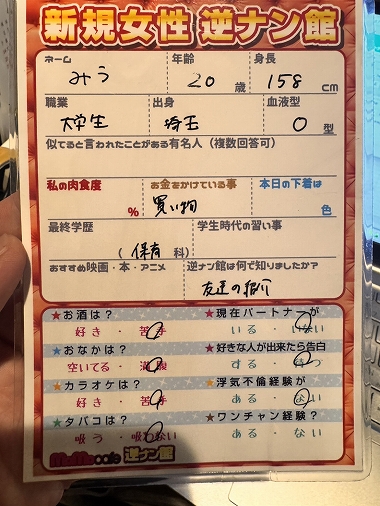 新規女性 逆ナン館
ネーム 年齢 身長
みう 20歳 158cm
職業 出身 血液型
大学生 埼玉 O型
似てると言われたことがある有名人(複数回答可)
私の肉食度 お金をかけている事 本日の下着は
% 買い物 色
最終学歴 学生時代の習い事
(保育科)
おすすめ映画・本・アニメ 逆ナン館は何で知りましたか?
友達の紹介
★お酒は? ★現在パートナーが
好き・苦手 いる・いない
★おなかは? ★好きな人が出来たら告白
空いてる・満腹 する・待つ
★カラオケは? ★浮気不倫経験が
好き・苦手 ある・ない
★タバコは? ★ワンチャン経験?
吸う・吸わない ある・ない
MoMo cafe 逆ナン館